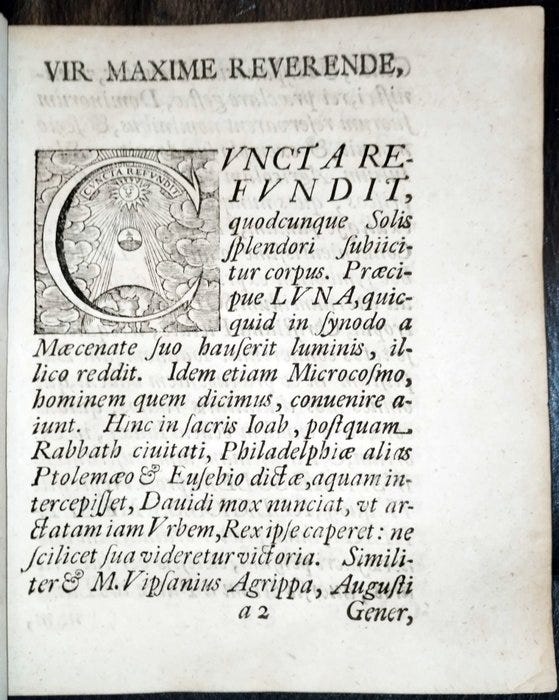 VIR MAXIME REVERENDE,
CVNCTA REFVNDIT
CVNCTA RE-
FVNDIT,
quodcunque Solis
ſplendori ſubiici-
tur corpus. Præci-
pue LVNA, quic-
quid in ſynodo a
Mæcenate ſuo hauſerit luminis, il-
lico reddit. Idem etiam Microcoſmo,
hominem quem dicimus, conuenire a-
iunt. Hinc in ſacris Ioab, poſtquam
Rabbath ciuitati, Philadelphiæ alias
Ptolemæo & Euſebio dictæ, aquam in-
tercepiſſet, Dauidi mox nunciat, vt ar-
ctatam iam Vrbem, Rex ipſe caperet: ne
ſcilicet ſua videretur victoria. Simili-
ter & M. Vipſanius Agrippa, Auguſti
a 2 Gener,